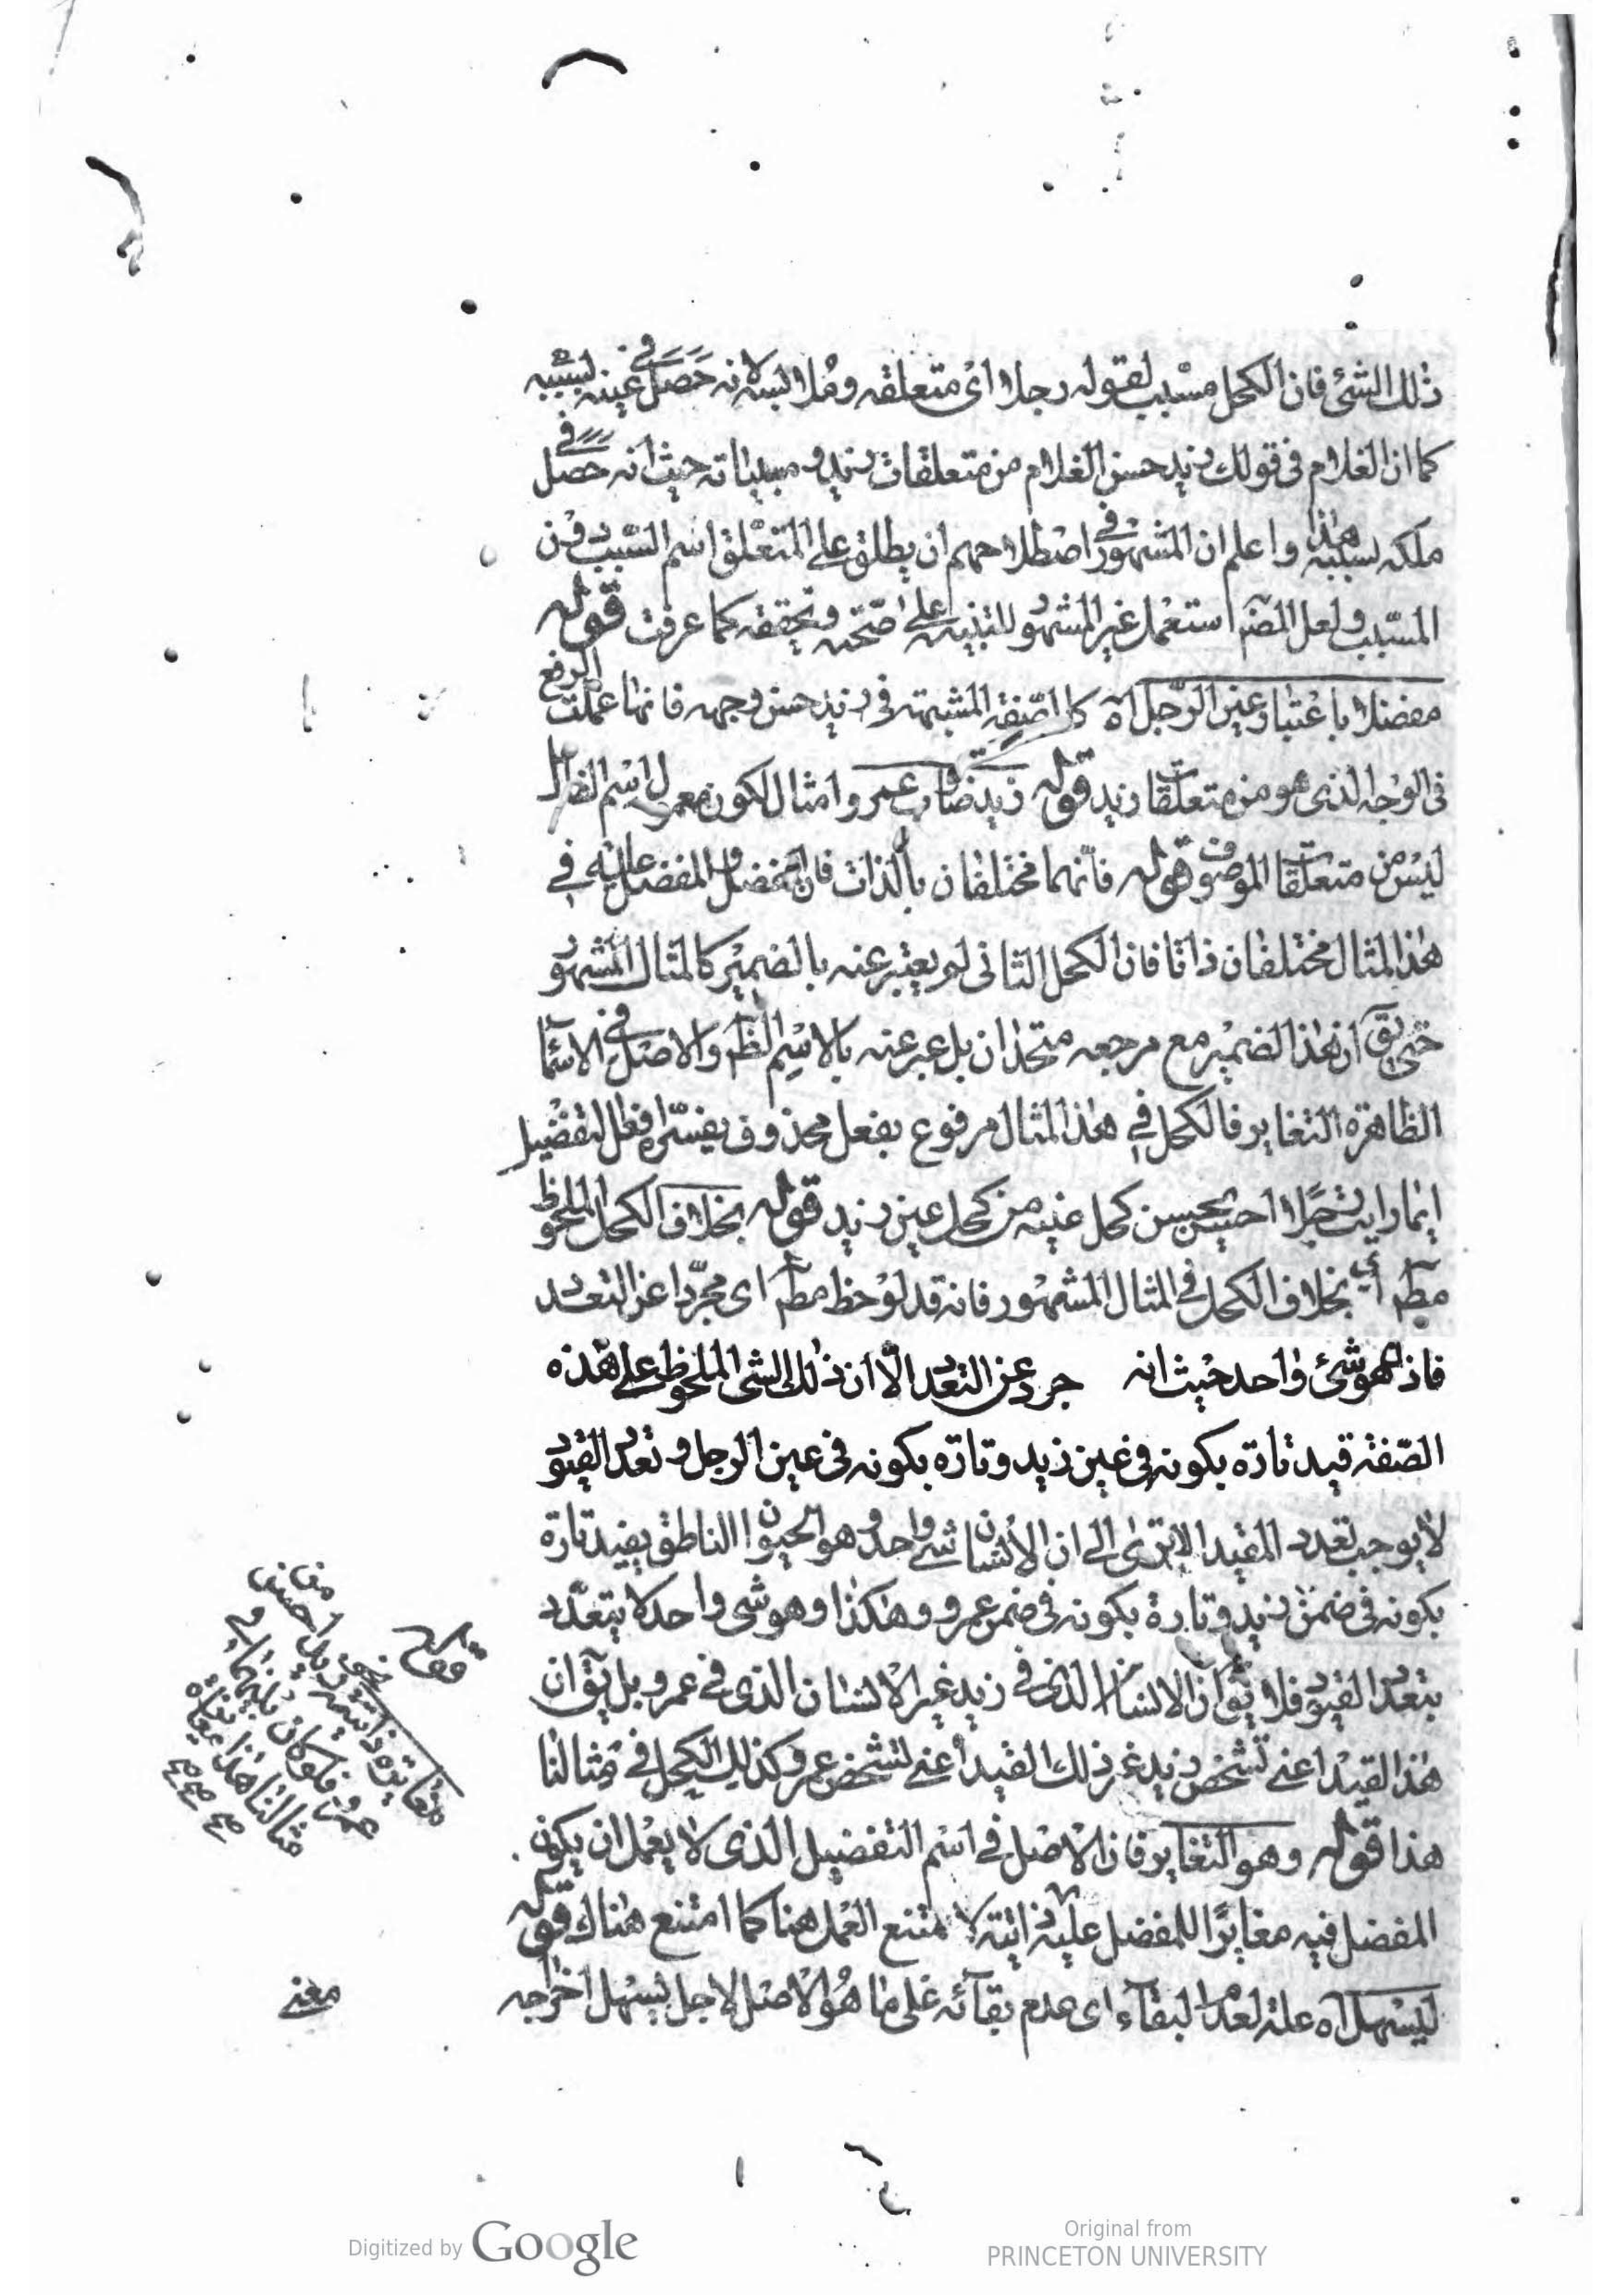 ذلك الشئ فان الكحل مسبب لقوله رجلا اى متعلقه وملابسه لانه حصل في عينه لسببه
كما ان الغلام فى قولك زيد حسن الغلام من متعلقات زيد و مسبباته حيث انه حصل في
ملكه بسببه هذا واعلم ان المشهور في اصطلاحهم ان يطلق على المتعلق اسم السبب دون
المسبب ولعل المصَ استعمل غير المشهور للتنبيه على صحته وتحققه كما عرفت قوله
مفضلا باعتبار عين الرجل اه كالصفة المشبهة فى زيد حسن وجهه فانها عملت الرفع
فى الوجه الذى هو من متعلقات زيد قوله زيد ضارب عمرو امثال لكون معمول اسم الفاعل
ليس من متعلقات الموصوف قوله فانهما مختلفان بالذات فان المفضل والمفضل عليه في
هذا المثال مختلفان ذاتا فان الكحل الثانى لم يعتبر عنه بالضمير كالمثال المشهور
حتى يق ان هذا الضمير مع مرجعه متحدان بل عبر عنه بالاسم الظ والاصل فى الاسماء
الظاهرة التغاير فالكحل في هذا المثال مرفوع بفعل محذوف يفسره افعل التفضيل
اى ما رايت رجلا احسن يحسن كحل عينه من كحل عين زيد قوله بخلاف الكحل الملحوظ
مطَم اى بخلاف الكحل في المثال المشهور فانه قد لوحظ مطَم اى مجردا عن التعدد
فاذا هو شئ واحد حيث انه جرد عن التعدد الا ان ذلك الشى الملحوظ على هذه
الصفة قيد تارة بكونه فى عين زيد وتارة بكونه فى عين الرجل و تعدد القيود
لا يوجب تعدد المقيد الا ترى الى ان الانسان شئ واحد و هو الحيوان الناطق يقيد تارة
بكونه فى ضمن زيد وتارة بكونه فى ضمن عمرو وهكذا وهو شى واحد لا يتعدد
بتعدد القيود فلا يق ان الانسان الذى فى زيد غير الانسان الذى فى عمرو بل يق ان
هذا القيد اعنى تشخص زيد غير ذلك القيد اعنى تشخص عمرو كذلك الكحل فى مثالنا
هذا قوله وهو التغاير فان الاصل فى اسم التفضيل الذى لا يعمل ان يكون
المفضل فيه مغايرا للمفضل عليه ذاتية لا متنع العمل هنا كما امتنع هناك قوله
ليسهل اه علة لعدم البقاء اى عدم بقائه على ما هو الاصل لاجل يسهل اخراجه
مغايرة ذاتية
معنى